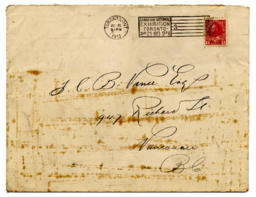 TORONTO
1912
CANADIAN NATIONAL
EXHIBITION
TORONTO
J. C. B. Vance Esq
947 Richard St.
Vancouver
B.C.